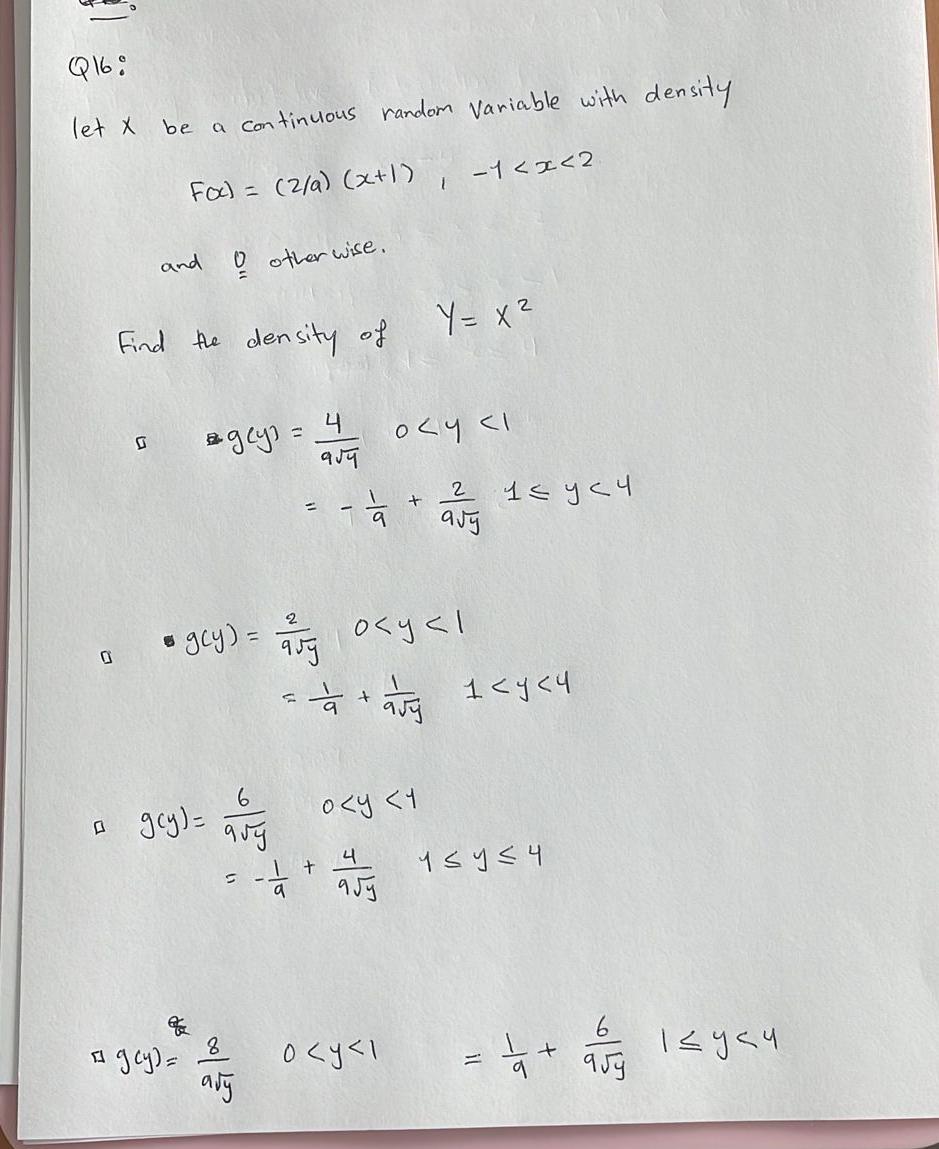 Q16:
let X be a continuous random variable with density
F(x) = (2/9) (x+1) , -1 < x < 2
and 0 otherwise.
Find the density of Y = X²
□ g(y) = 4/(9√y) 0 < y < 1
= - 1/9 + 2/(9√y) 1 ≤ y < 4
□ g(y) = 2/(9√y) 0 < y < 1
= 1/9 + 1/(9√y) 1 < y < 4
□ g(y) = 6/(9√y) 0 < y < 1
= - 1/9 + 4/(9√y) 1 ≤ y ≤ 4
□ g(y) = 8/(9√y) 0 < y < 1 = 1/9 + 6/(9√y) 1 ≤ y < 4